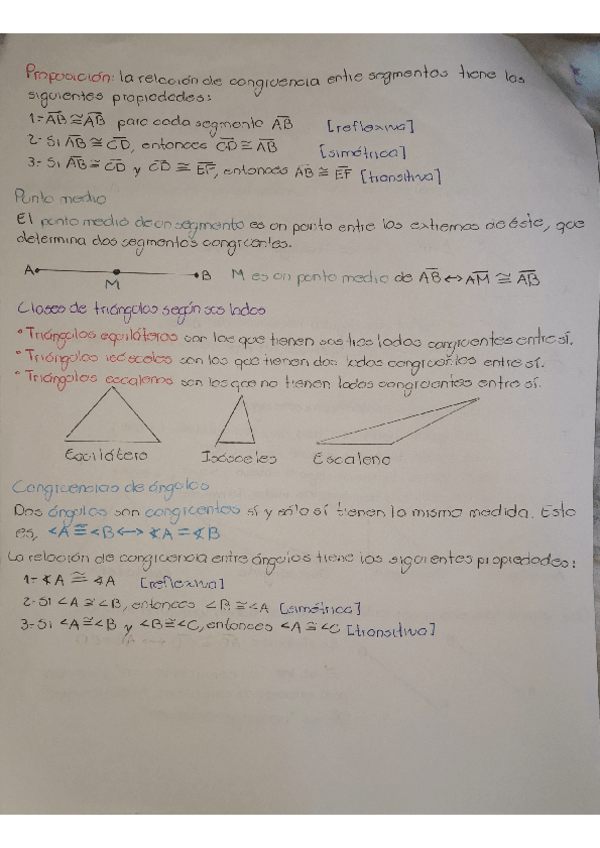 Proposición: la relación de congruencia entre segmentos tiene las
siguientes propiedades:
1= A̅B̅ ≅ A̅B̅ para cada segmento A̅B̅ [reflexiva]
2- Si A̅B̅ ≅ C̅D̅, entonces C̅D̅ ≅ A̅B̅ [simétrica]
3- Si A̅B̅ ≅ C̅D̅ y C̅D̅ ≅ E̅F̅, entonces A̅B̅ ≅ E̅F̅ [transitiva]
Punto medio
El punto medio de un segmento es un punto entre los extremos de éste, que
determina dos segmentos congruentes.
A M B M es un punto medio de A̅B̅ ↔ A̅M̅ ≅ A̅B̅
Clases de triángulos según sus lados
• Triángulos equiláteros son los que tienen sus tres lados congruentes entre sí.
• Triángulos isósceles son los que tienen dos lados congruentes entre sí.
• Triángulos escalenos son los que no tienen lados congruentes entre sí.
Equilátero Isósceles Escaleno
Congruencias de ángulos
Dos ángulos son congruentes sí y sólo sí tienen la misma medida. Esto
es, ∠A ≅ ∠B ↔ ∡A = ∡B
La relación de congruencia entre ángulos tiene las siguientes propiedades:
1= ∡A ≅ ∡A [reflexiva]
2- Si ∠A ≅ ∠B, entonces ∠B ≅ ∠A [simétrica]
3- Si ∠A ≅ ∠B y ∠B ≅ ∠C, entonces ∠A ≅ ∠C [transitiva]